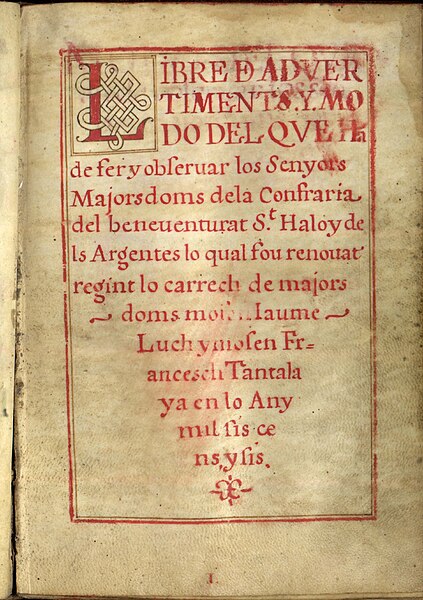 LIBRE D ADVER
TIMENTS. Y. MO
DO DEL QVE Ha
de fer y obseruar los Senyors
Majorsdoms dela Confraria
del beneuenturat S.t Haloy de
ls Argentes lo qual fou renouat
regint lo carrech de majors
doms. Iaume
Luch y mosen Fr=
ancesch Tantala
ya en lo Any
mil sis ce
ns, y sis.
1